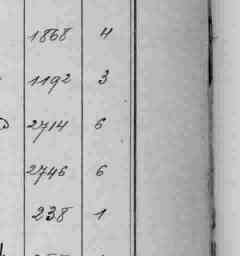 1868 4
1192 3
2714 6
2746 6
238 1